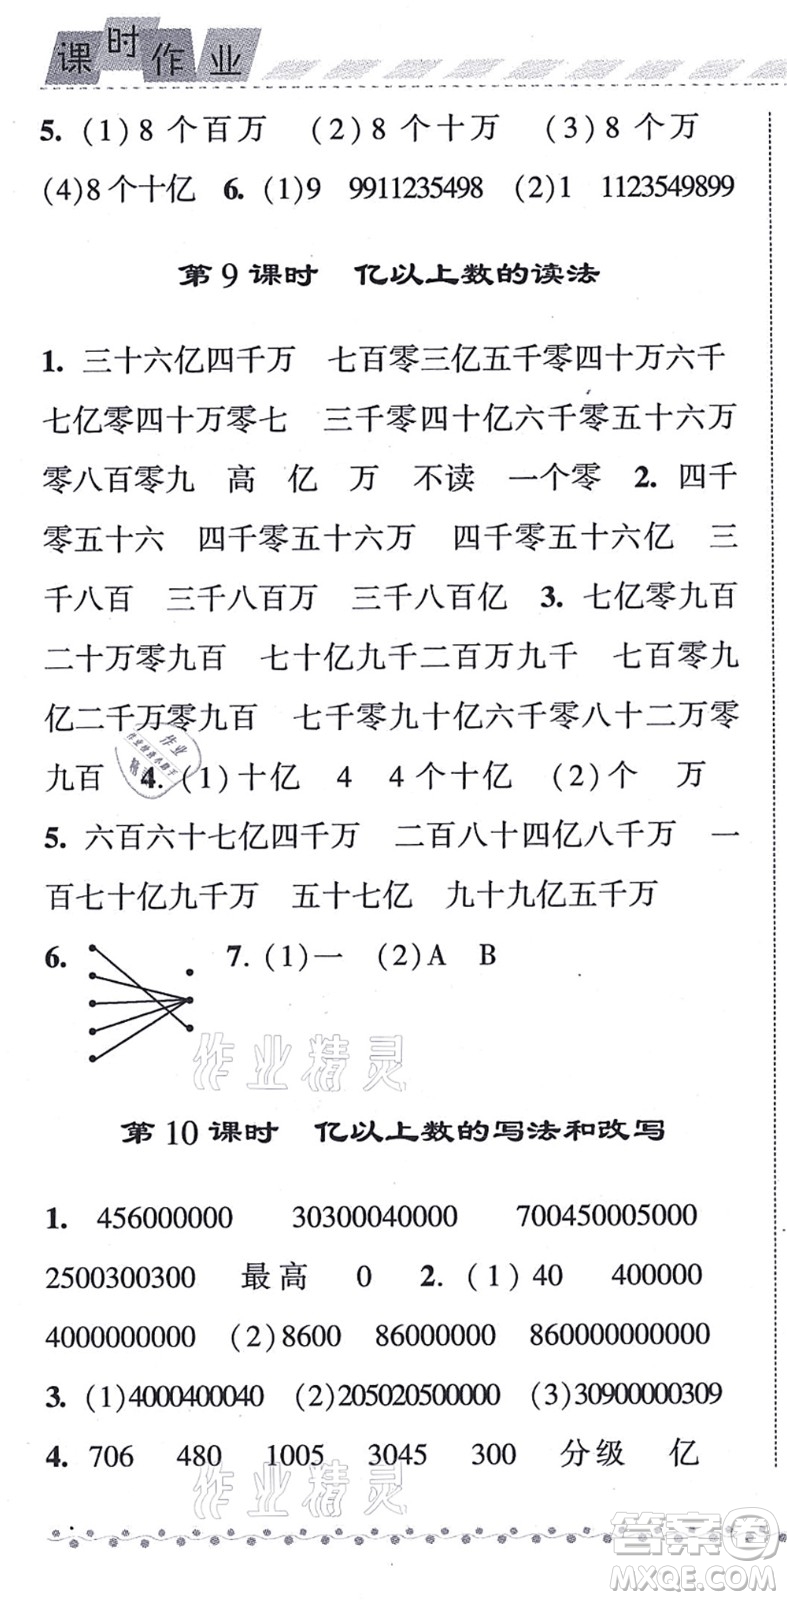 课时作业
5. (1)8个百万 (2)8个十万 (3)8个万
(4)8个十亿 6. (1)9 9911235498 (2)1 1123549899
第9课时 亿以上数的读法
1. 三十六亿四千万 七百零三亿五千零四十万六千
七亿零四十万零七 三千零四十亿六千零五十六万
零八百零九 高 亿 万 不读 一个零 2. 四千
零五十六 四千零五十六万 四千零五十六亿 三
千八百 三千八百万 三千八百亿 3. 七亿零九百
二十万零九百 七十亿九千二百万九千 七百零九
亿二千万零九百 七千零九十亿六千零八十二万零
九百 4. (1)十亿 4 4个十亿 (2)个 万
5. 六百六十七亿四千万 二百八十四亿八千万 一
百七十亿九千万 五十七亿 九十九亿五千万
6. 7. (1)一 (2)A B
作业精灵
第10课时 亿以上数的写法和改写
1. 456000000 30300040000 700450005000
2500300300 最高 0 2. (1)40 400000
4000000000 (2)8600 86000000 860000000000
3. (1)4000400040 (2)205020500000 (3)30900000309
4. 706 480 1005 3045 300 分级 亿
作业精灵
答案圈
MXQE.COM